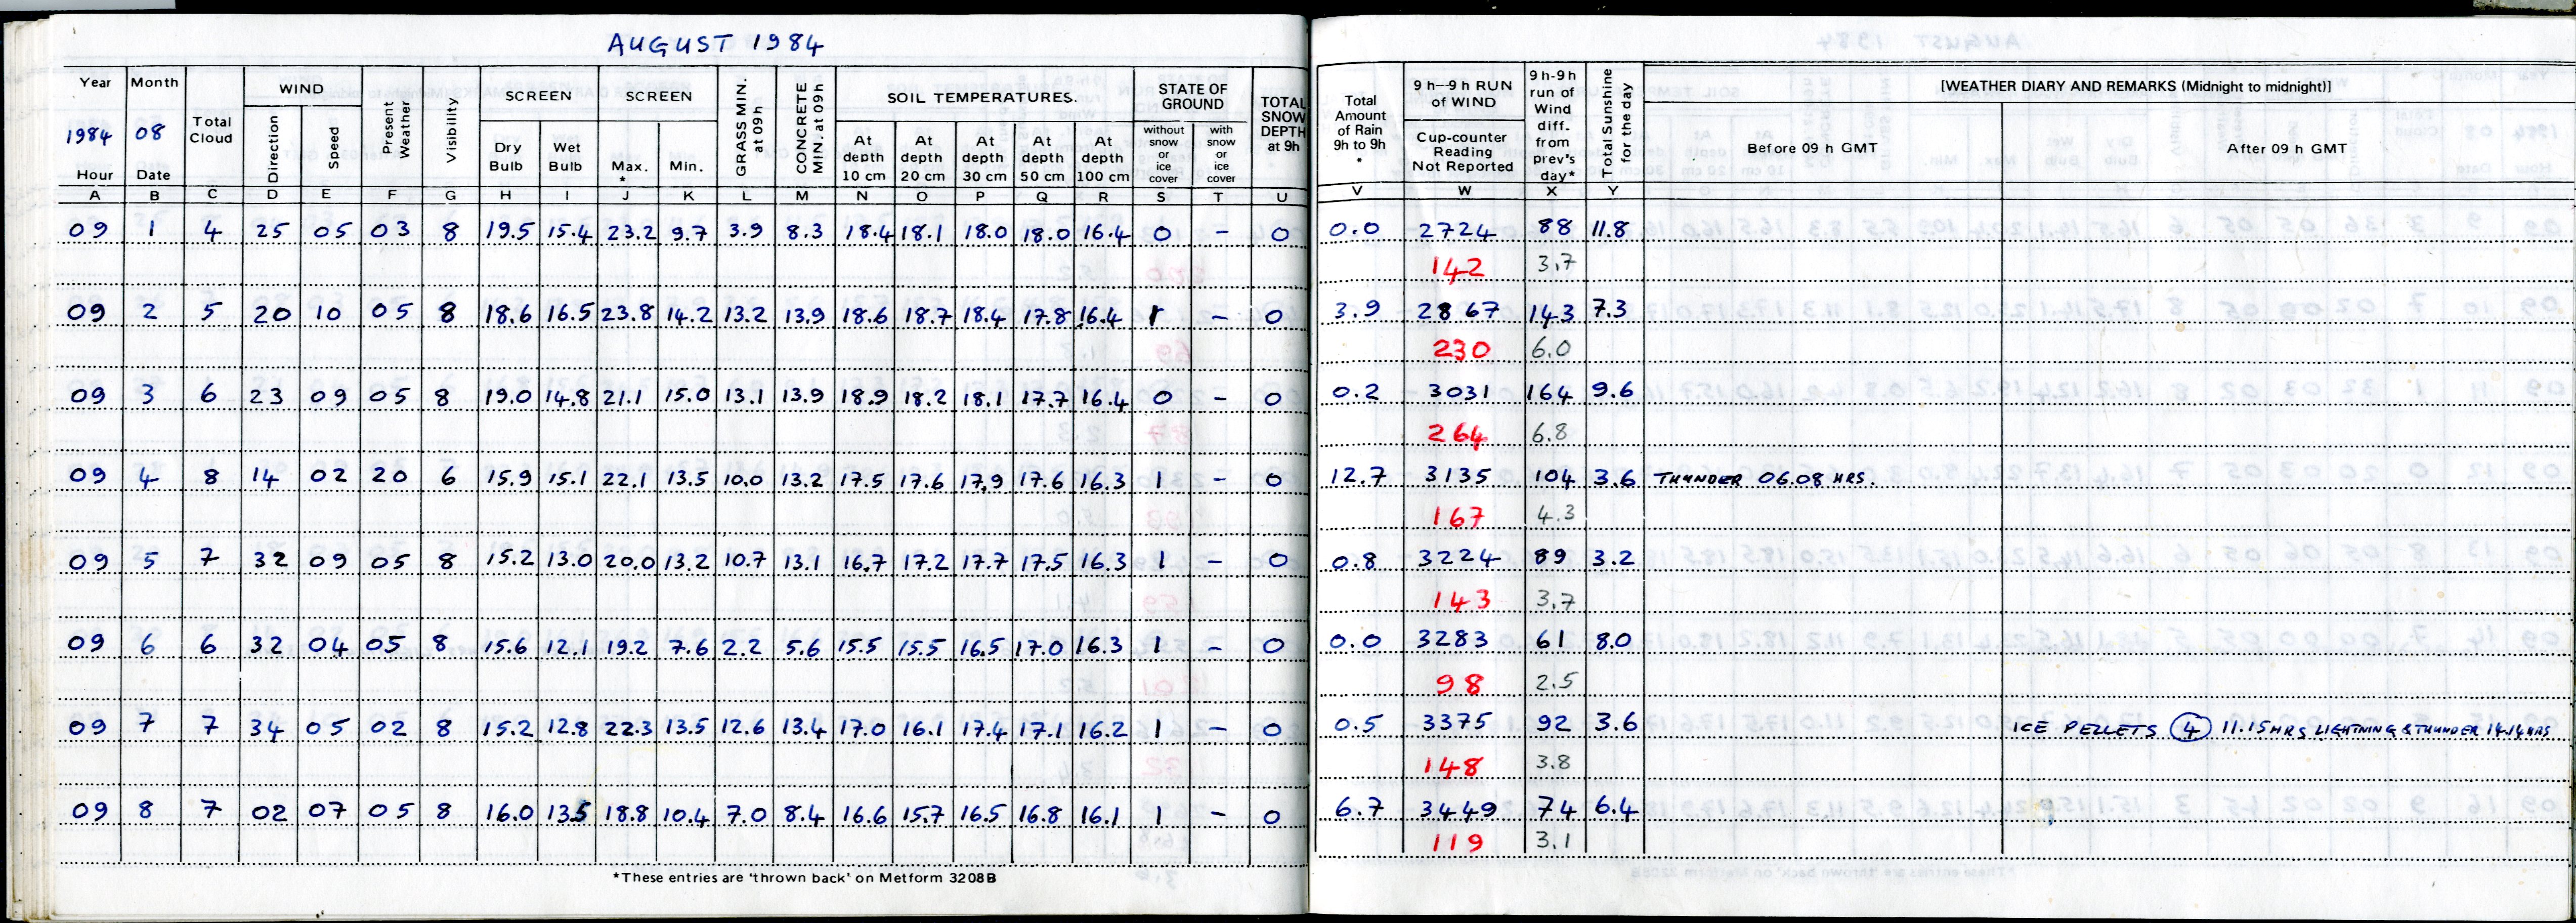 AUGUST 1984
Year Month Total Cloud WIND Present Weather Visibility SCREEN SCREEN GRASS MIN. at 09h CONCRETE MIN. at 09h SOIL TEMPERATURES. STATE OF GROUND TOTAL SNOW DEPTH at 9h Total Amount of Rain 9h to 9h * 9 h--9 h RUN of WIND 9 h-9 h run of Wind diff. from prev's day* Total Sunshine for the day [WEATHER DIARY AND REMARKS (Midnight to midnight)]
1984 08 Direction Speed Dry Bulb Wet Bulb Max. * Min. At depth 10 cm At depth 20 cm At depth 30 cm At depth 50 cm At depth 100 cm without snow or ice cover with snow or ice cover Cup-counter Reading Not Reported Before 09 h GMT After 09 h GMT
Hour Date
A B C D E F G H I J K L M N O P Q R S T U V W X Y
09 1 4 25 05 03 8 19.5 15.4 23.2 9.7 3.9 8.3 18.4 18.1 18.0 18.0 16.4 0 - 0 0.0 2724 88 11.8
142 3.7
09 2 5 20 10 05 8 18.6 16.5 23.8 14.2 13.2 13.9 18.6 18.7 18.4 17.8 16.4 1 - 0 3.9 2867 143 7.3
230 6.0
09 3 6 23 09 05 8 19.0 14.8 21.1 15.0 13.1 13.9 18.9 18.2 18.1 17.7 16.4 0 - 0 0.2 3031 164 9.6
264 6.8
09 4 8 14 02 20 6 15.9 15.1 22.1 13.5 10.0 13.2 17.5 17.6 17.9 17.6 16.3 1 - 0 12.7 3135 104 3.6 THUNDER 06.08 HRS.
167 4.3
09 5 7 32 09 05 8 15.2 13.0 20.0 13.2 10.7 13.1 16.7 17.2 17.7 17.5 16.3 1 - 0 0.8 3224 89 3.2
143 3.7
09 6 6 32 04 05 8 15.6 12.1 19.2 7.6 2.2 5.6 15.5 15.5 16.5 17.0 16.3 1 - 0 0.0 3283 61 8.0
98 2.5
09 7 7 34 05 02 8 15.2 12.8 22.3 13.5 12.6 13.4 17.0 16.1 17.4 17.1 16.2 1 - 0 0.5 3375 92 3.6 ICE PELLETS 4 11.15 HRS LIGHTNING & THUNDER 14.14 HRS
148 3.8
09 8 7 02 07 05 8 16.0 13.5 18.8 10.4 7.0 8.4 16.6 15.7 16.5 16.8 16.1 1 - 0 6.7 3449 74 6.4
119 3.1
*These entries are 'thrown back' on Metform 3208B